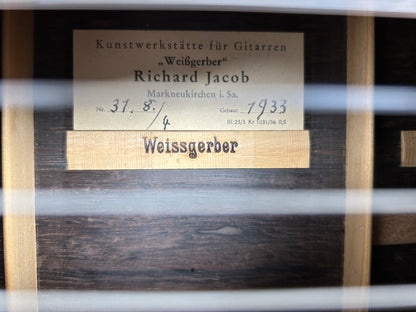 Kunstwerkstätte für Gitarren
„Weißgerber“
Richard Jacob
Markneukirchen i. Sa.
Nr. 31. 8./4 Gebaut 1933
III/25/3 Kr 1031/56 0,5
Weissgerber